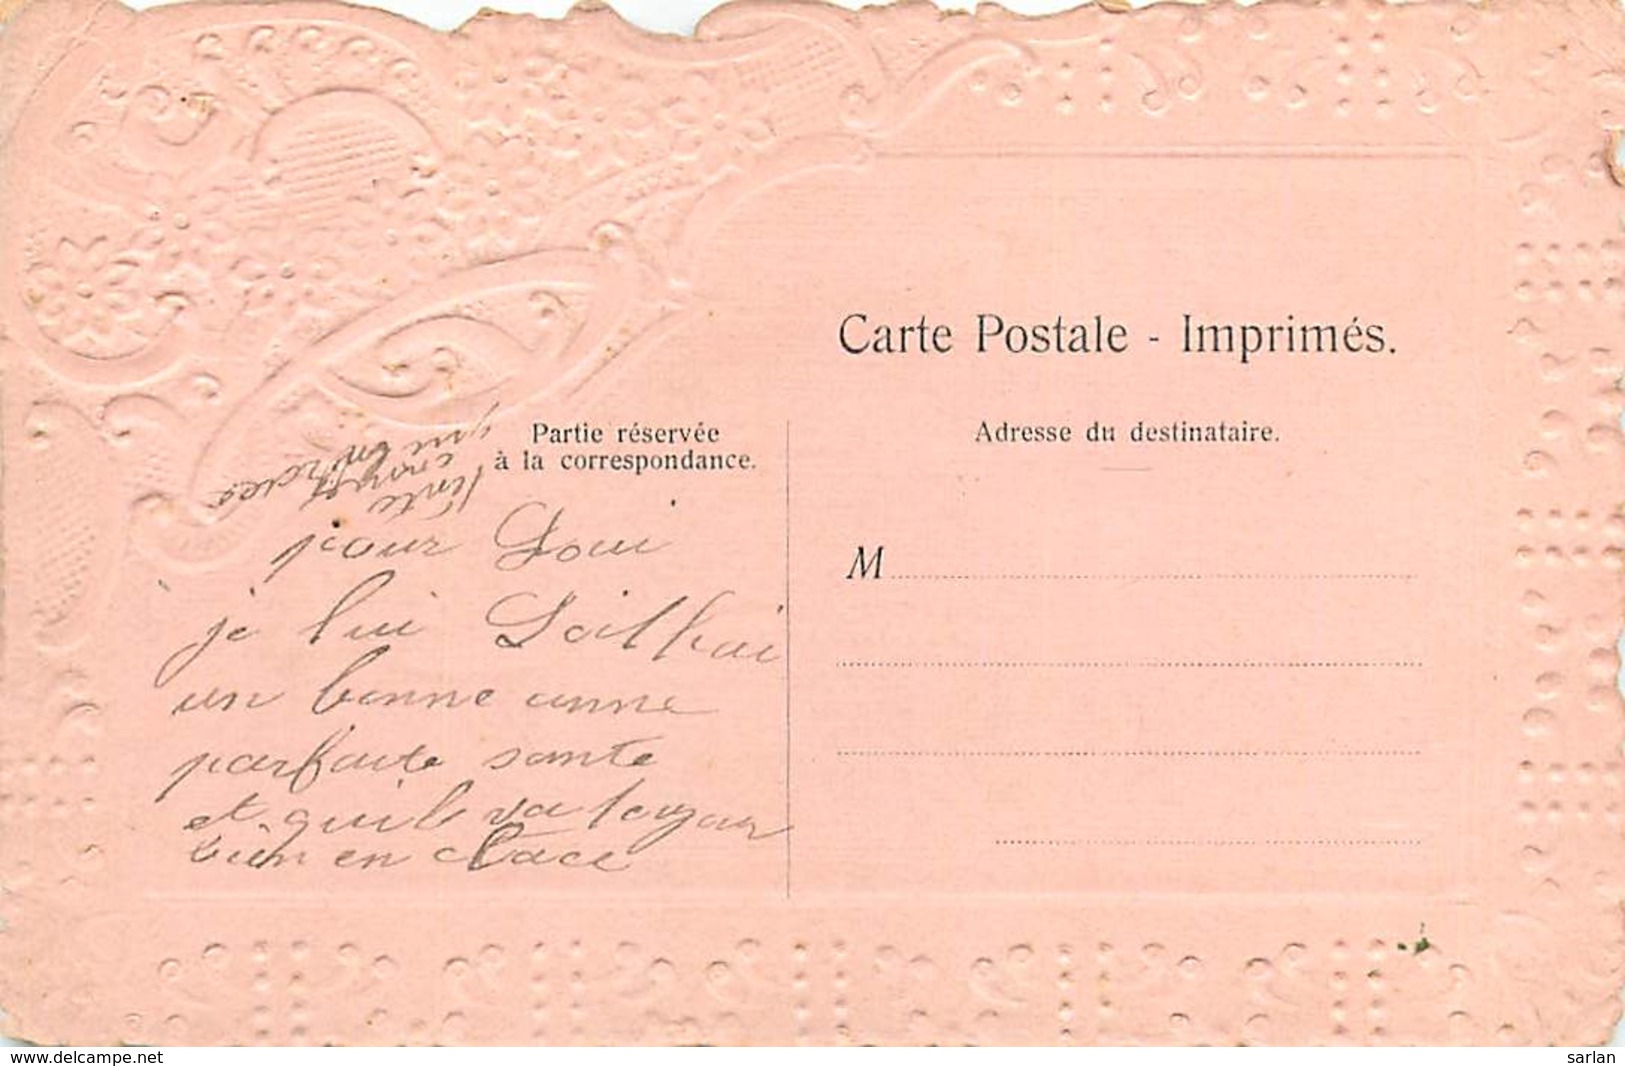 Carte Postale - Imprimés.
Partie réservée
à la correspondance.
Adresse du destinataire.
M
pour Loui
je lui Soithai
un bonne anne
parfaite sante
et quil va toujour
bien en Clace
www.delcampe.net
sarlan